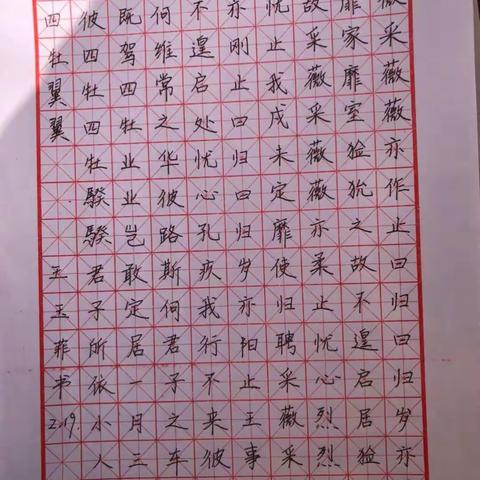 薇采薇薇亦作止曰归曰归岁亦
靡家靡室猃狁之故不遑启居猃
故采薇采薇薇亦柔止忧心烈烈
忧止我戍未定靡使归聘采薇采
亦刚止曰归曰归岁亦阳止王事
不遑启处忧心孔疚我行不来彼
何维常之华彼路斯何君子之车
既驾四牡业业岂敢定居一月三
彼四牡四牡騤騤君子所依小人
四牡翼翼 王玉菲书2.19.